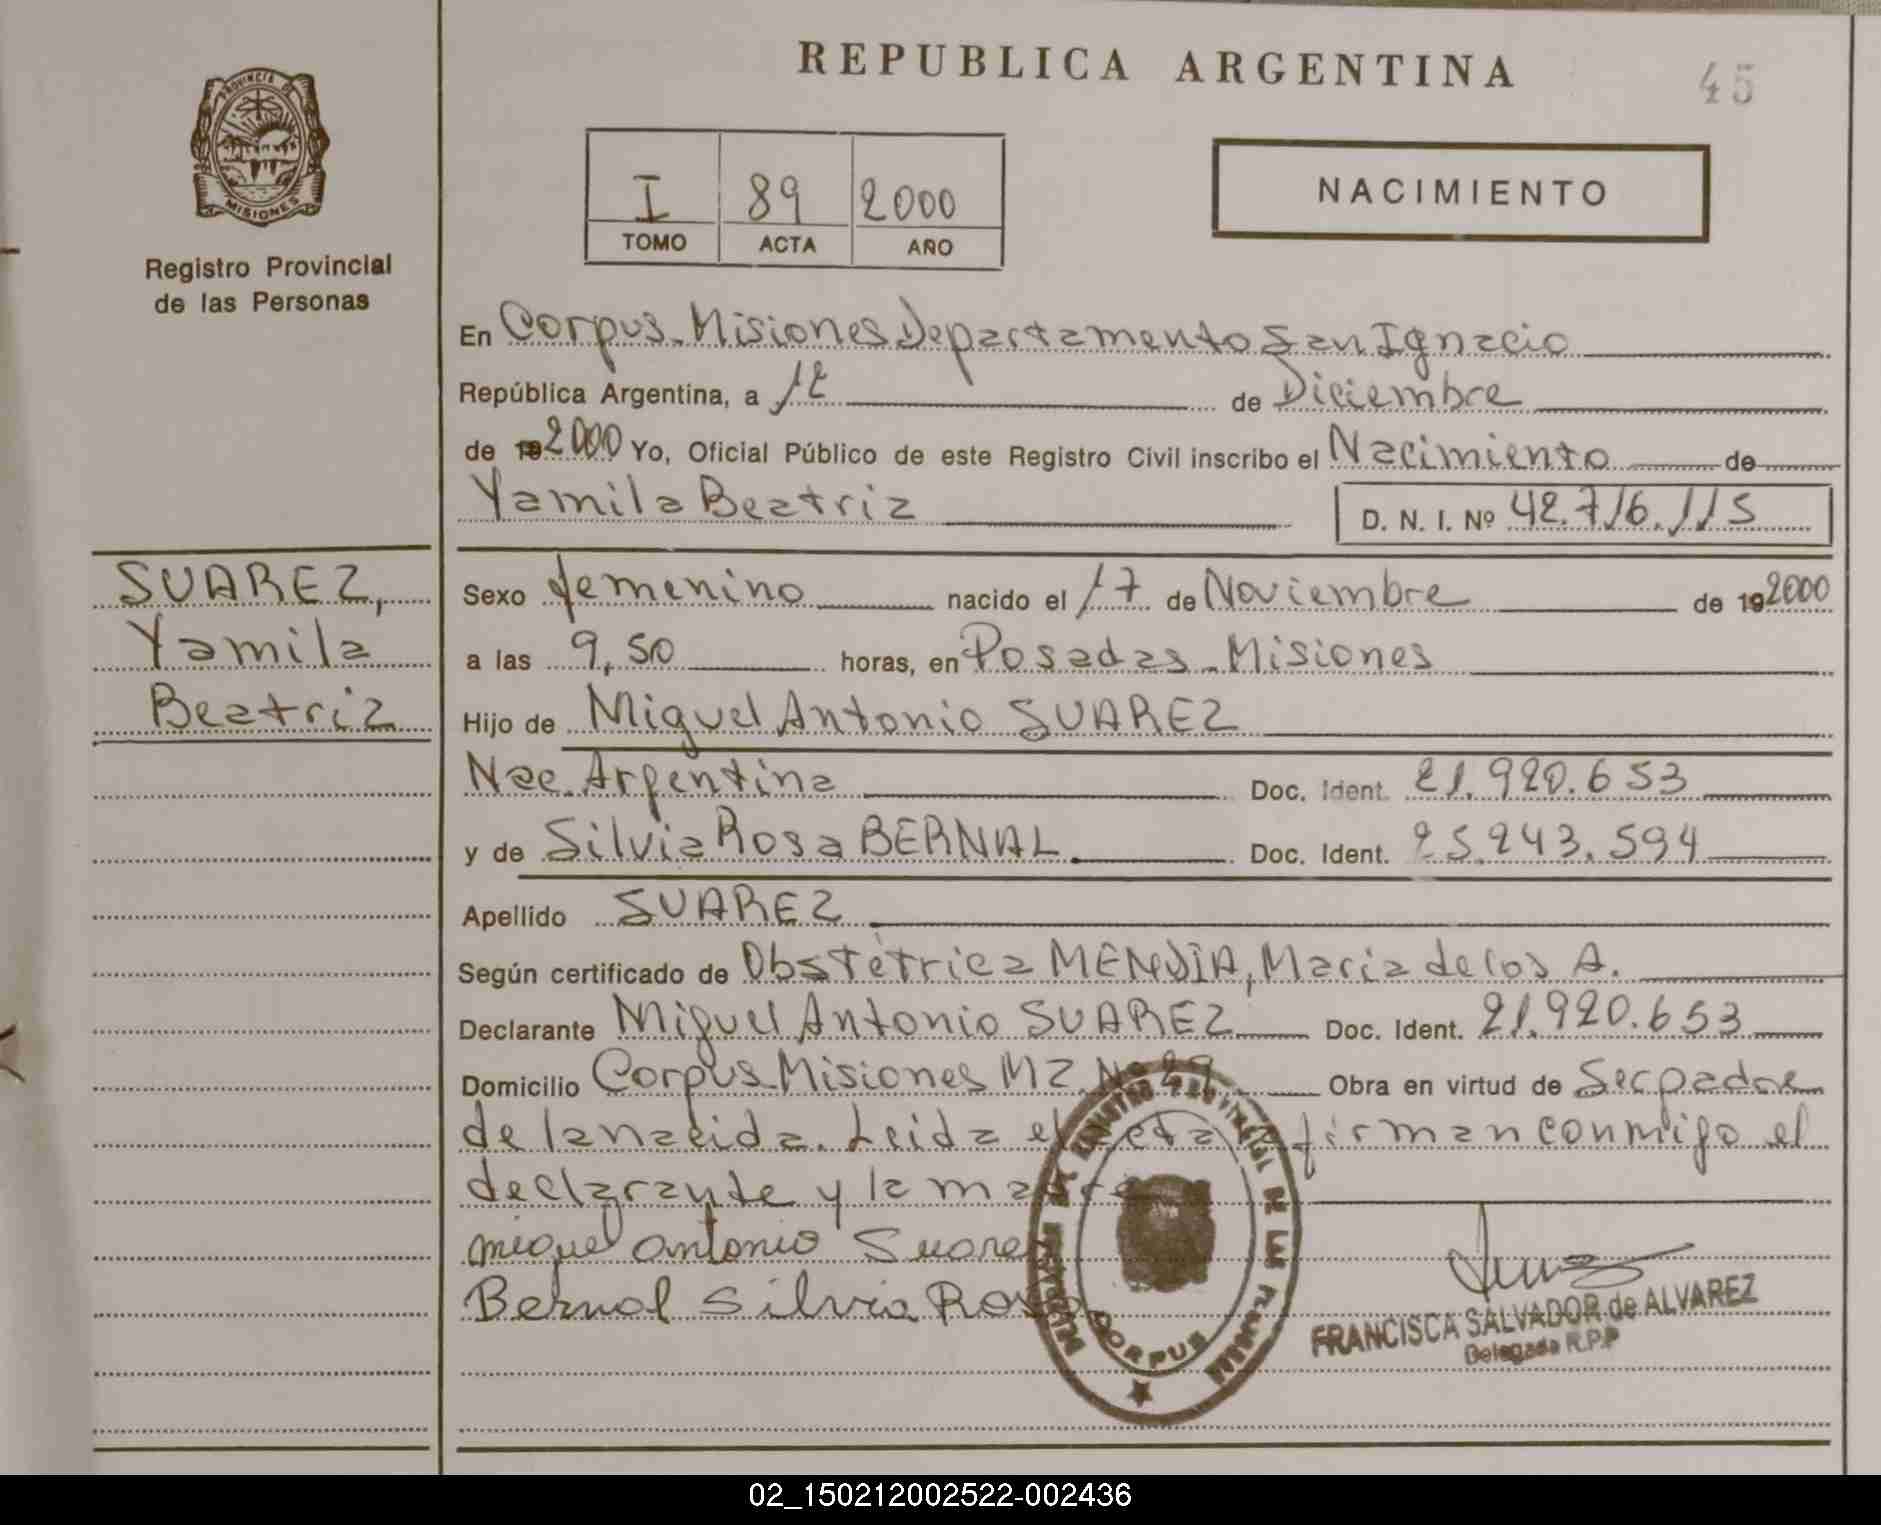 REPUBLICA ARGENTINA
45
PROVINCIA DE
MISIONES
Registro Provincial
de las Personas
I 89 2000
TOMO ACTA AÑO
NACIMIENTO
En Corpus-Misiones Departamento San Ignacio
República Argentina, a 12 de Diciembre
de 19 2000 Yo, Oficial Público de este Registro Civil inscribo el Nacimiento de
Yamila Beatriz D. N. I. Nº 42.716.115
SUAREZ,
Yamila
Beatriz
Sexo femenino nacido el 17 de Noviembre de 19 2000
a las 9,50 horas, en Posadas-Misiones
Hijo de Miguel Antonio SUAREZ
Nac. Argentina Doc. Ident. 21.920.653
y de Silvia Rosa BERNAL Doc. Ident. 25.243.594
Apellido SUAREZ
Según certificado de Obstétrica MENDIA, Maria de los A.
Declarante Miguel Antonio SUAREZ Doc. Ident. 21.920.653
Domicilio Corpus-Misiones MZ. Nº 29 Obra en virtud de Ser padre
de la nacida. Leida el acta la firman conmigo el
declarante y la madre
Miguel Antonio Suarez
Bernal Silvia Rosa
REGISTRO PROVINCIAL DE LAS
CORPUS
FRANCISCA SALVADOR de ALVAREZ
Delegada R.P.P
02_150212002522-002436